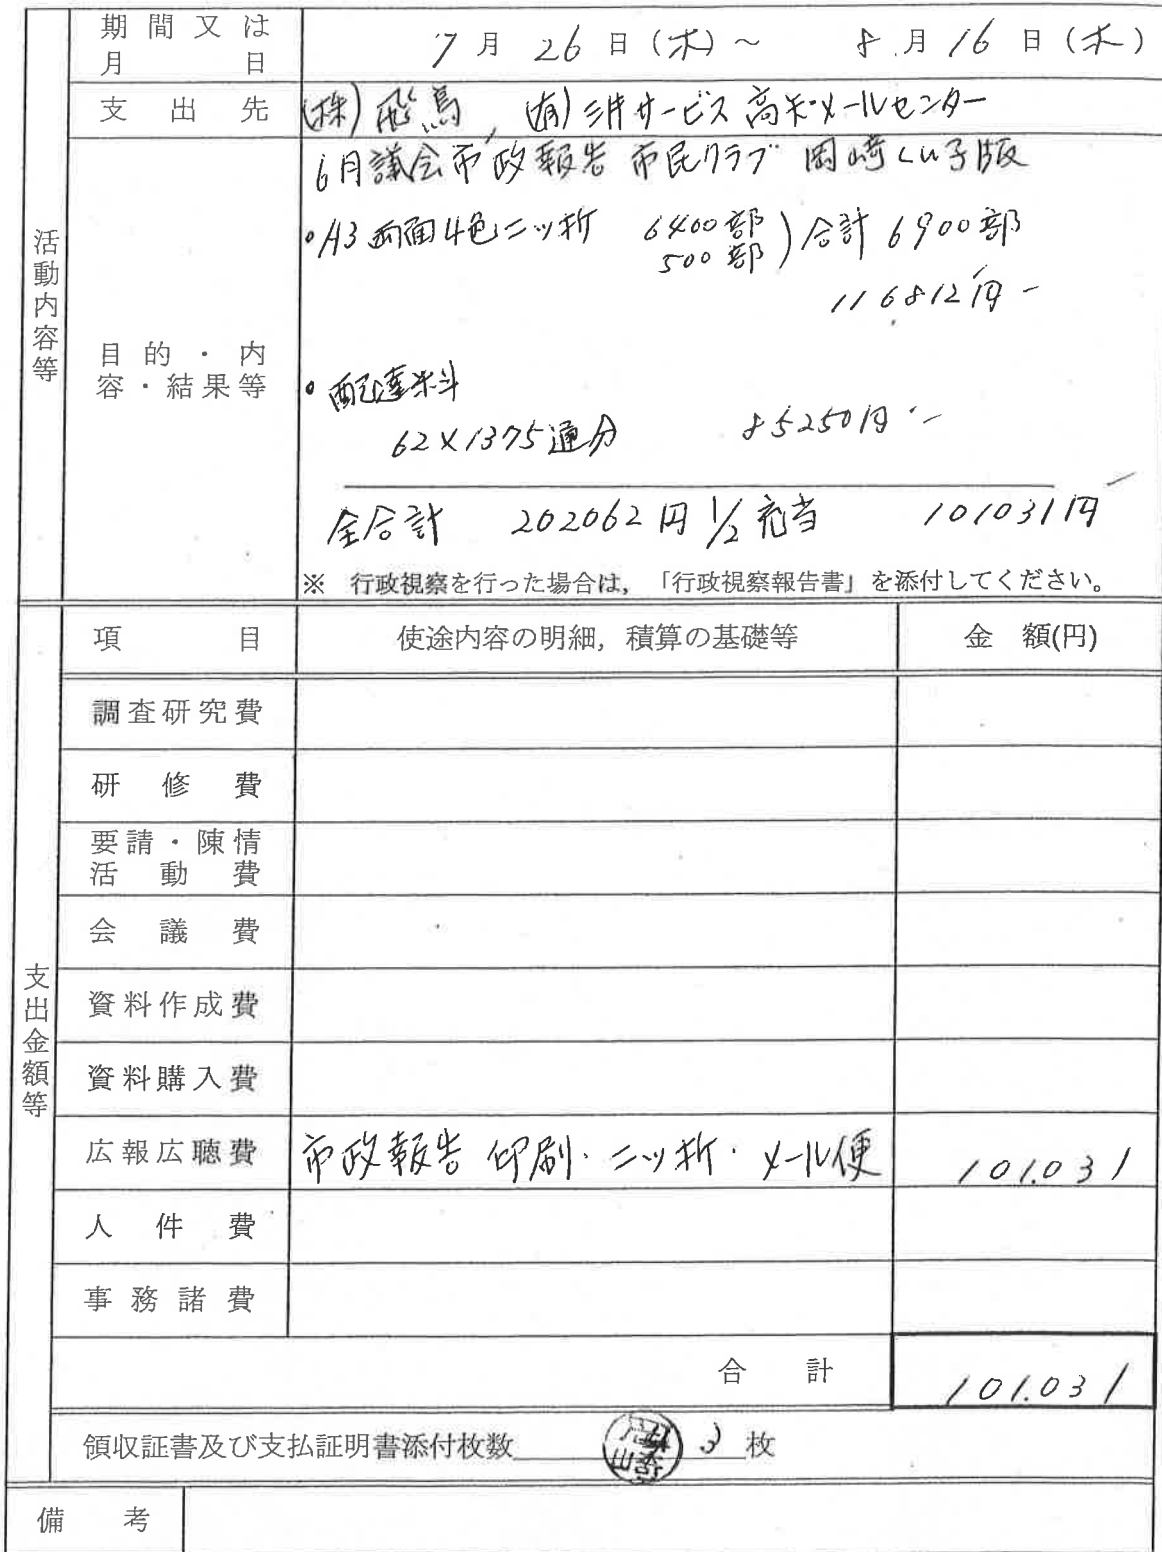 期間又は
月日
7月26日(木)～8月16日(木)
支出先
(株)飛鳥，(有)三井サービス高知メールセンター
活動内容等
目的・内
容・結果等
6月議会市政報告 市民クラブ 岡﨑くに子版
・A3両面4色二ッ折 6400部
500部)合計6900部
116812円-
・配達料
62×1375通分 85250円-
全合計 202062円 1/2充当 101031円
※ 行政視察を行った場合は，「行政視察報告書」を添付してください。
支出金額等
項目 使途内容の明細，積算の基礎等 金額(円)
調査研究費
研修費
要請・陳情
活動費
会議費
資料作成費
資料購入費
広報広聴費 市政報告 印刷・ニッ折・メール便 101.031
人件費
事務諸費
合計 101.031
領収証書及び支払証明書添付枚数 3枚
備考